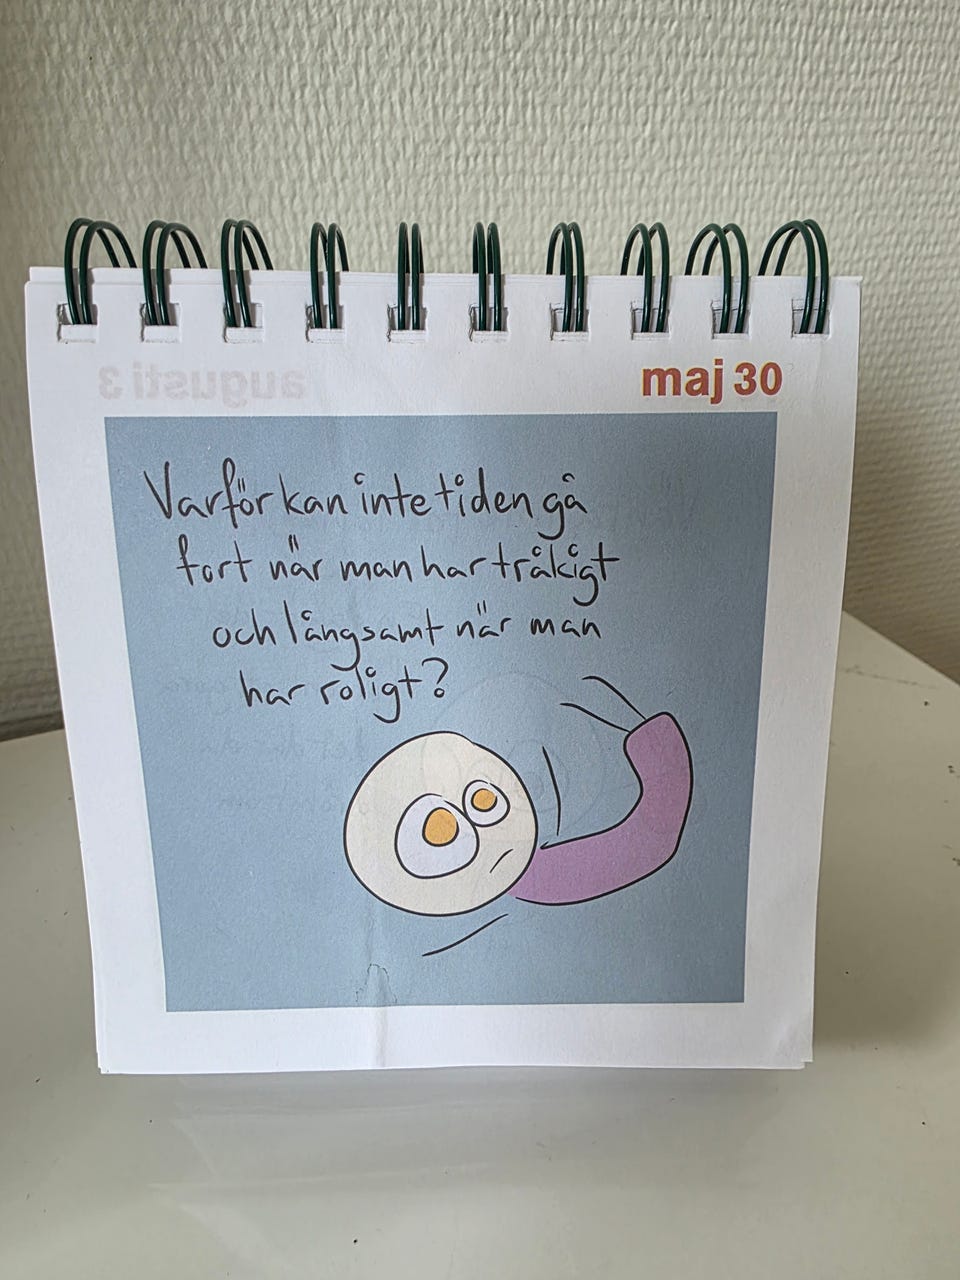 maj 30
augusti 3
Varför kan inte tiden gå
fort när man har tråkigt
och långsamt när man
har roligt?